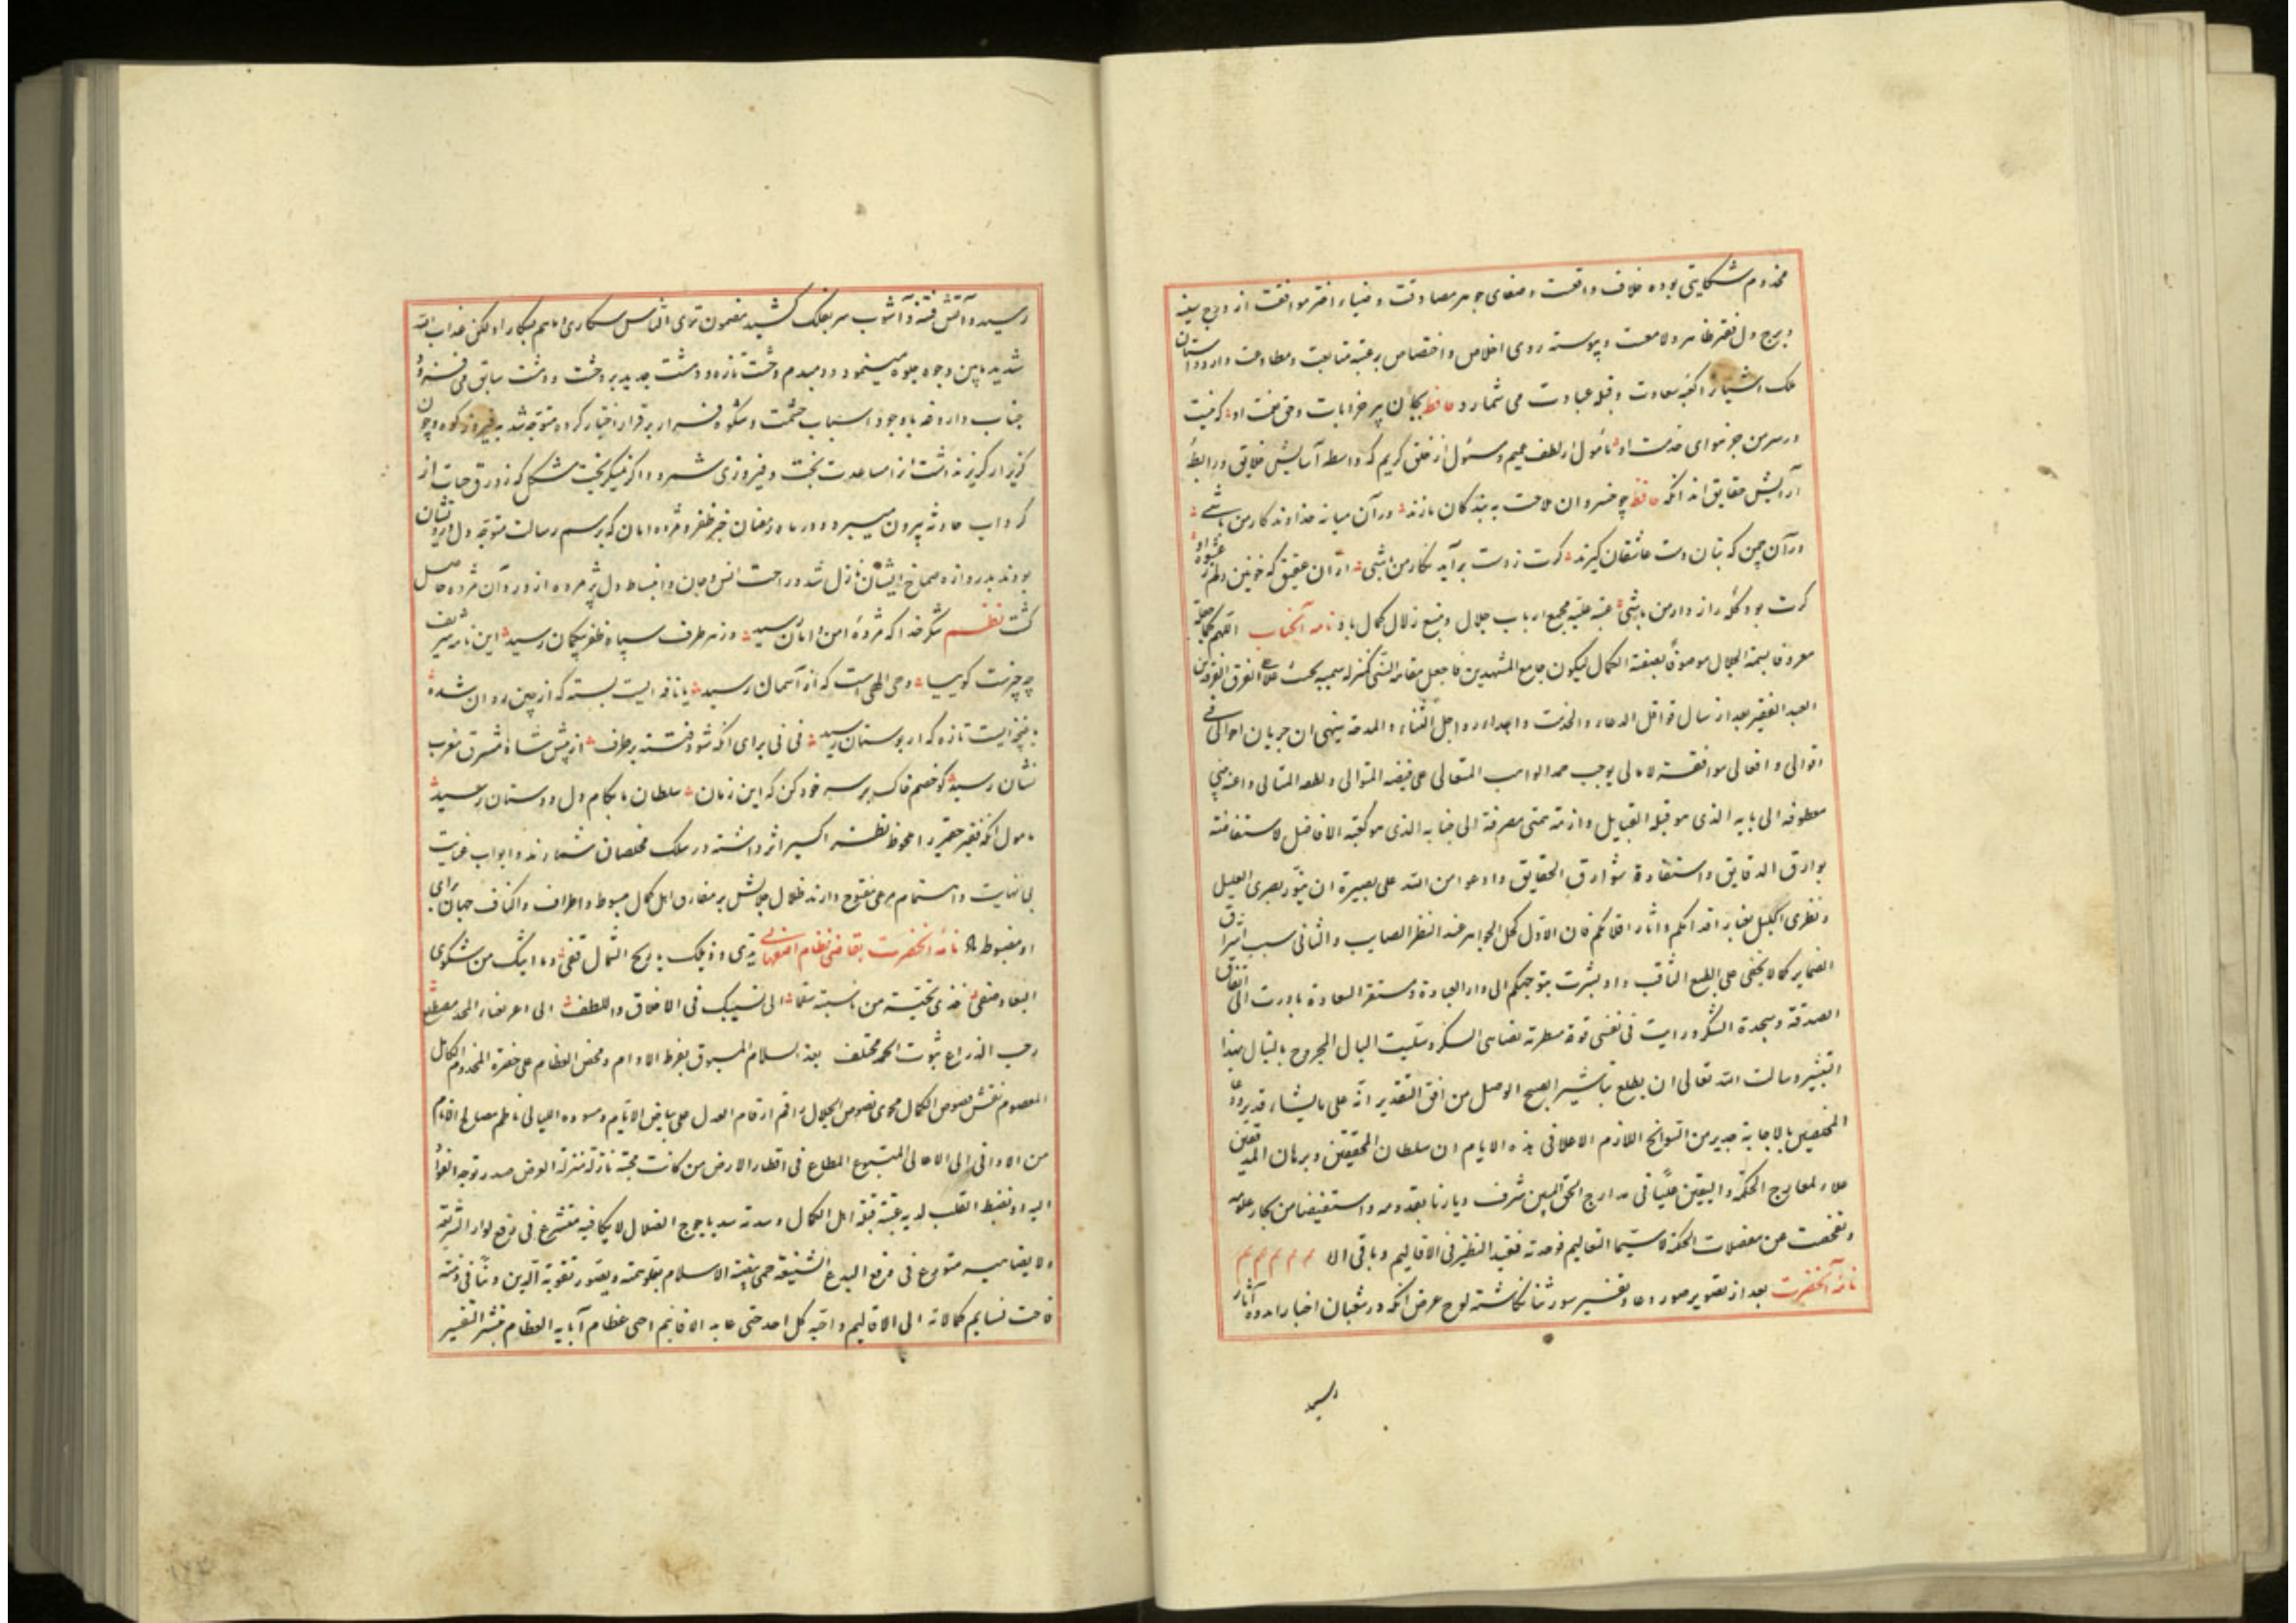 مخدوم شکایتی بوده خلاف واقعست و صفای جوهر مصادقت و ضیاء اختر موافقت از درج سینه
و برج دل فقیر ظاهر و لامعست و پیوسته روی اخلاص و اختصاص بر عتبه متابعت و مطاوعت دارد و آستان
ملک اشتباه را کعبه سعادت و قبله عبادت می شمارد حافظ بجان پیر خرابات و حق نعمت او که نیست
در سر من جز هوای خدمت او مأمول از لطف عمیم و مسئول از خلق کریم که واسطه آسایش خلایق و رابطهٔ
آرایش حقایق اند آنکه حافظ چو خسروان ملاحت به بندگان نازند در آن میانه خداوندکار من باشی
در آن چمن که بتان دست عاشقان گیرند گرت ز دست برآید نگار من باشی از آن عقیق که خونین دلم ز عشوهٔ او
گرت بود گلهٔ رازدار من باشی عتبه علیه مجمع ارباب جلال و منبع زلال کمال باد نامه آنجناب اللهم کما جعلته
معروفا بسمة الجلال موصوفا بصفة الکمال لیکون جامع المشهدین فاجعل مقامه
العبد الفقیر بعد ارسال قوافل الدعاء والخدمت و اجل الثناء والمدحة ینهی ان جریان احوالی فی
اقوالی و افعالی موافقة لامالی یوجب حمد الواهب المتعالی علی فیضه المتوالی و لطفه المتالی و اعنة
معطوفه الی بابه الذی هو قبلة القبایل و ازمة همتی مصرفة الی جنابه الذی هو کعبة الافاضل لاستفاضة
بوارق الدقایق و استفادة شوارق الحقایق و ادعو امن الله علی بصیرة ان ینور بصری العلیل
و نظری الکلیل بغبار اقدامکم و اثار اقلامکم فان الاول کحل الجواهر عند النظر الصایب و الثانی سبب اشراق
الضمایر کما لا یخفی علی الطبع الثاقب و اذ بشرت بتوجهکم الی دار العبادة و مستقر السعادة بادرت الی انفاق
الصدقة و سجدة الشکر و رایت فی نفسی قوة و سلیت البال المجروح بالنبال بهذا
التبشیر و سالت الله تعالی ان یطلع تباشیر الصبح الوصل من افق التقدیر انه علی ما یشاء قدیر
المخلصین بالاجابة جدیر من السوانح اللازم الاعلام فی هذه الایام ان سلطان المحققین و برهان المدققین
علاء لمعارج الحکمة و الیقین فی مدارج الحق المبین شرف دیارنا بقدومه و استفیضنا من بحار علومه
و تفحصت عن معضلات الحکمة لا سیما التعالیم فوجدته فقید النظیر فی الاقالیم و باقی الا م م م م م
نامهٔ آنحضرت بعد از تصویر صور دعا و تفسیر سور ثنا نگاشته لوح عرض آنکه در شعبان اخبار اندوه آثار
رسید
رسید و آتش فتنه و آشوب سر بفلک کشید مضمون تری الناس سکاری و ما هم بسکاری ولکن عذاب الله
شدید باین وجوه جلوه مینمود و دمبدم وحشت تازه و دهشت جدید بر وحشت و دهشت سابق می افزود
جناب داروغه باوجود اسباب حشمت و شکوه فرار بر قرار اختیار کرده متوجه شد به فیروزکوه و چون
گزیز از گریز نداشت از مساعدت بخت و فیروزی شمرد و اگر نمیگریخت مشکل که زورق حیات از
گرداب حادثه بیرون میبرد و در ماه رمضان خبر ظفر و مژده امان که برسم رسالت متوجه دل ایشان
بودند بدروازه صماخ ایشان نازل شد و راحت انس و جان و انبساط دل پژمرده از ورود آن مژده حاصل
گشت نظم شکر خدا که مژدهٔ امن و امان رسید وز هر طرف سپاه ظفر بیکران رسید این نامه شریف
چه چیزست کوییا وحی الهی است که از آسمان رسید یا نافه ایست بسته که از چین روان شده
یا غنچه ایست تازه که از بوستان رسید نی نی برای آنکه شود فتنه برطرف از پیش شاه مشرق و مغرب
نشان رسید کو خصم خاک بر سر خود کن که این زمان سلطان ما بکام دل دوستان رسید
مأمول آنکه فقیر حقیر را ملحوظ نظر اکسیر اثر داشته در سلک مخلصان شمارند و ابواب عنایت
بی نهایت و اهتمام مرعی مفتوح دارند ظلال جلالش بر مفارق اهل کمال مبسوط و اطراف و اکناف جهان برای
او مضبوط نامهٔ آنحضرت بقاضی نظام اصفهانی یا ریح الشمال قفی و ما ابثک من شکوی
البعاد صفی خذی تحیته من الی نسیمک فی الاخلاق و اللطف
رحب الذراع بثوت الحمد مختلف بعد السلام المسبوق بفرط الاوام و محض العظام علی حضرة المخدوم الکامل
المعصوم نقش فصوص الکمال محوی نصوص الجلال راقم ارقام العدل علی بیاض الایام و مسوده اللیالی ناظم مصالح الانام
من الادانی الی الاعالی المتبوع المطاع فی اقطار الارض من کانت محبته نازلة منزلة الفرض صدر توجه الفؤاد
الیه و تغبط القلب لدیه عتبة قبلة اهل الکمال و سدته سد یاجوج الضلال لا یکافیه متشرع فی رفع لواء الشریعة
ولا یضاهیه متورع فی رفع البدع الشنیعة حمی بیضة الاسلام بعلو همته و یتصور تقویة الدین
فاحت نسایم کمالاته الی الاقالیم و احبه کل احد حتی عابه الاقانیم احیی عظام آبایه العظام بنشر التفسیر